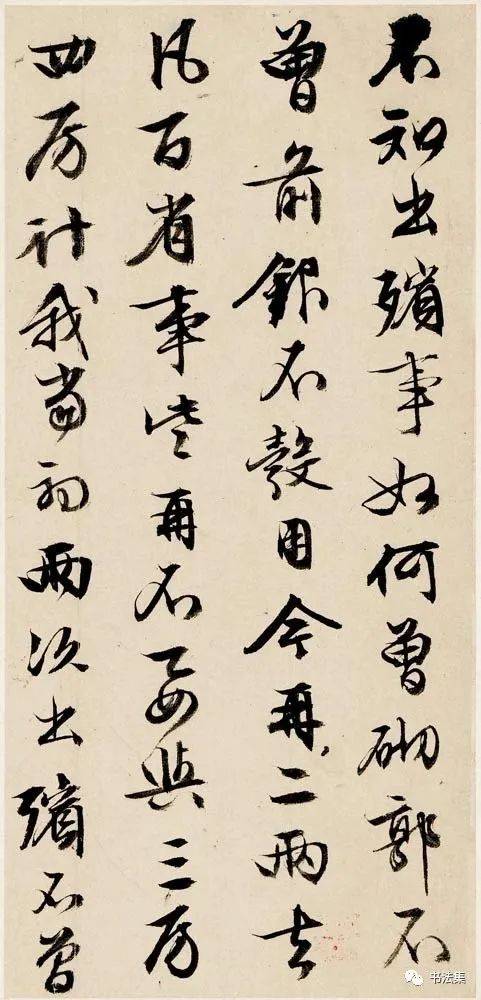 不知出殯事如何曾砌郭不
曾前銀不彀用今再二兩去
凡百省事些再不要與三房
四房計我當初兩次出殯不曾
书法集